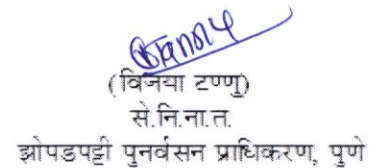 (विजया टण्णू)
से.नि.ना.त.
झोपडपट्टी पुनर्वसन प्राधिकरण, पुणे